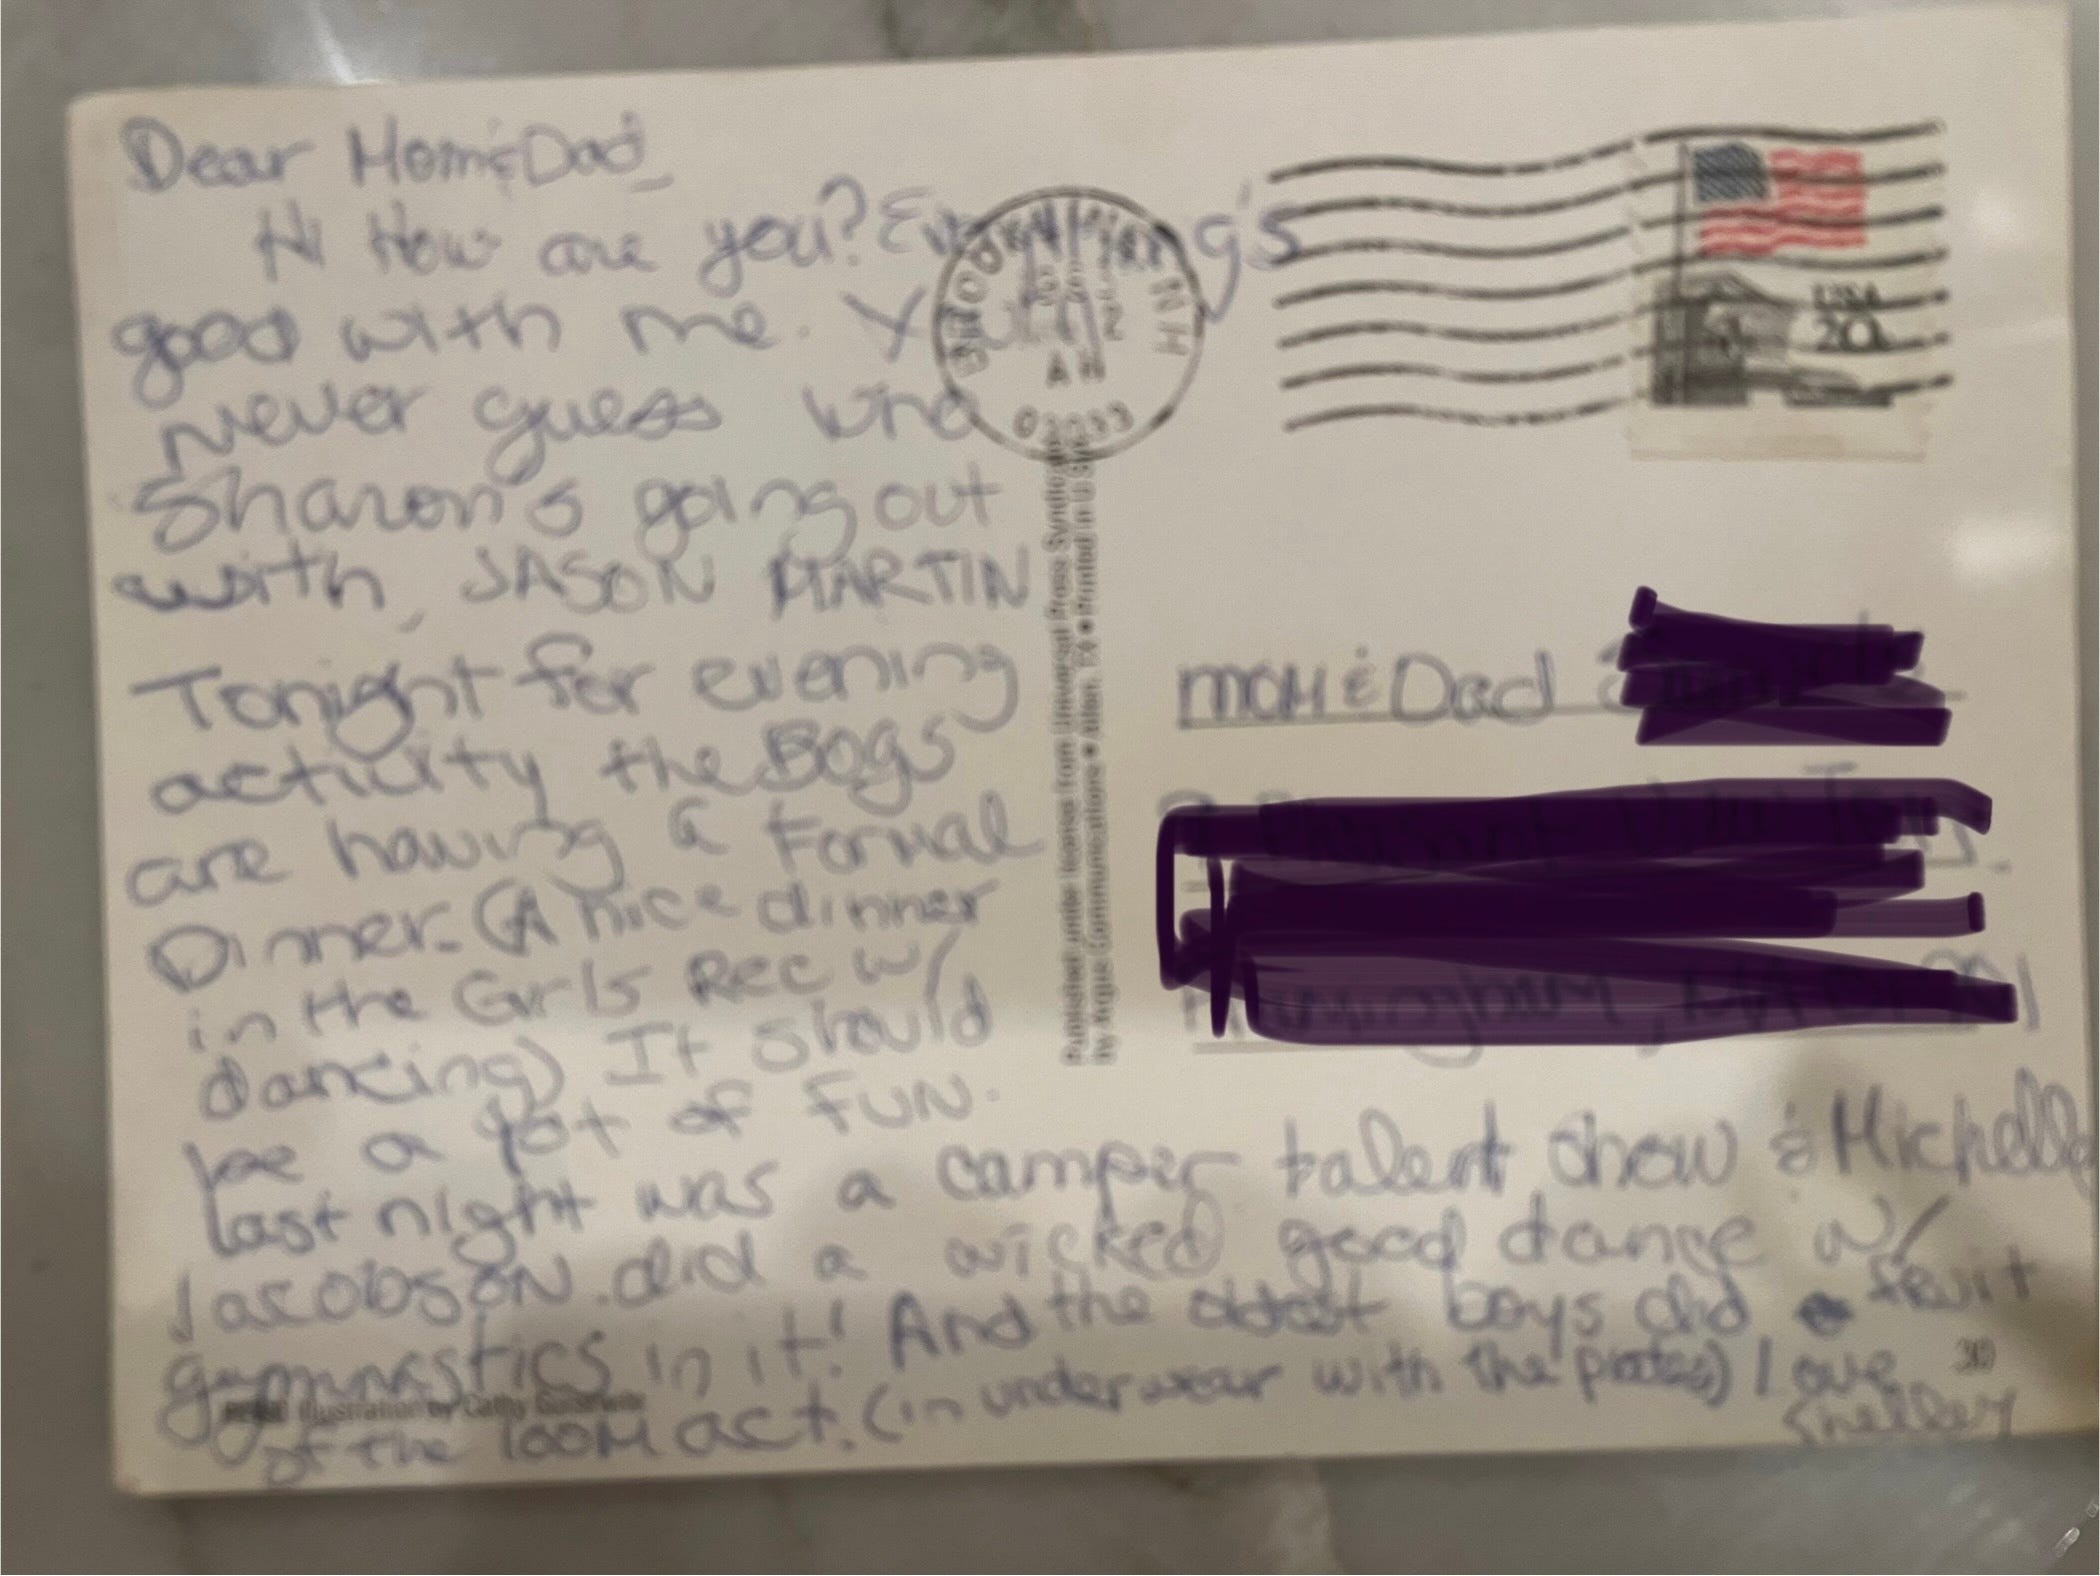 Dear Mom & Dad
Hi How are you? Everything's
good with me. You'll
never guess who
Sharon's going out
with, JASON MARTIN
Tonight for evening
activity the Bogs
are having a Formal
Dinner. (A nice dinner
in the Girls Rec w/
dancing) It should
be a lot of FUN.
Last night was a camper talent show & Michelle
Jacobson did a wicked good dance w/
gymnastics in it! And the oldest boys did fruit
of the loom act. (in underwear with the) Love
Shelley
BROOKLINE NH
AM
03033
USA
20c
Published under license from Universal Press Syndicate
by Argus Communications • Allen, TX • Printed in U.S.A.
MOM & Dad
Illustration by Cathy Guisewite
30